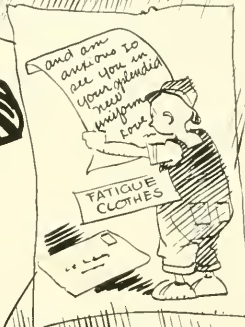 and am
anxious to
see you in
your splendid
new
uniform
Love
FATIGUE
CLOTHES